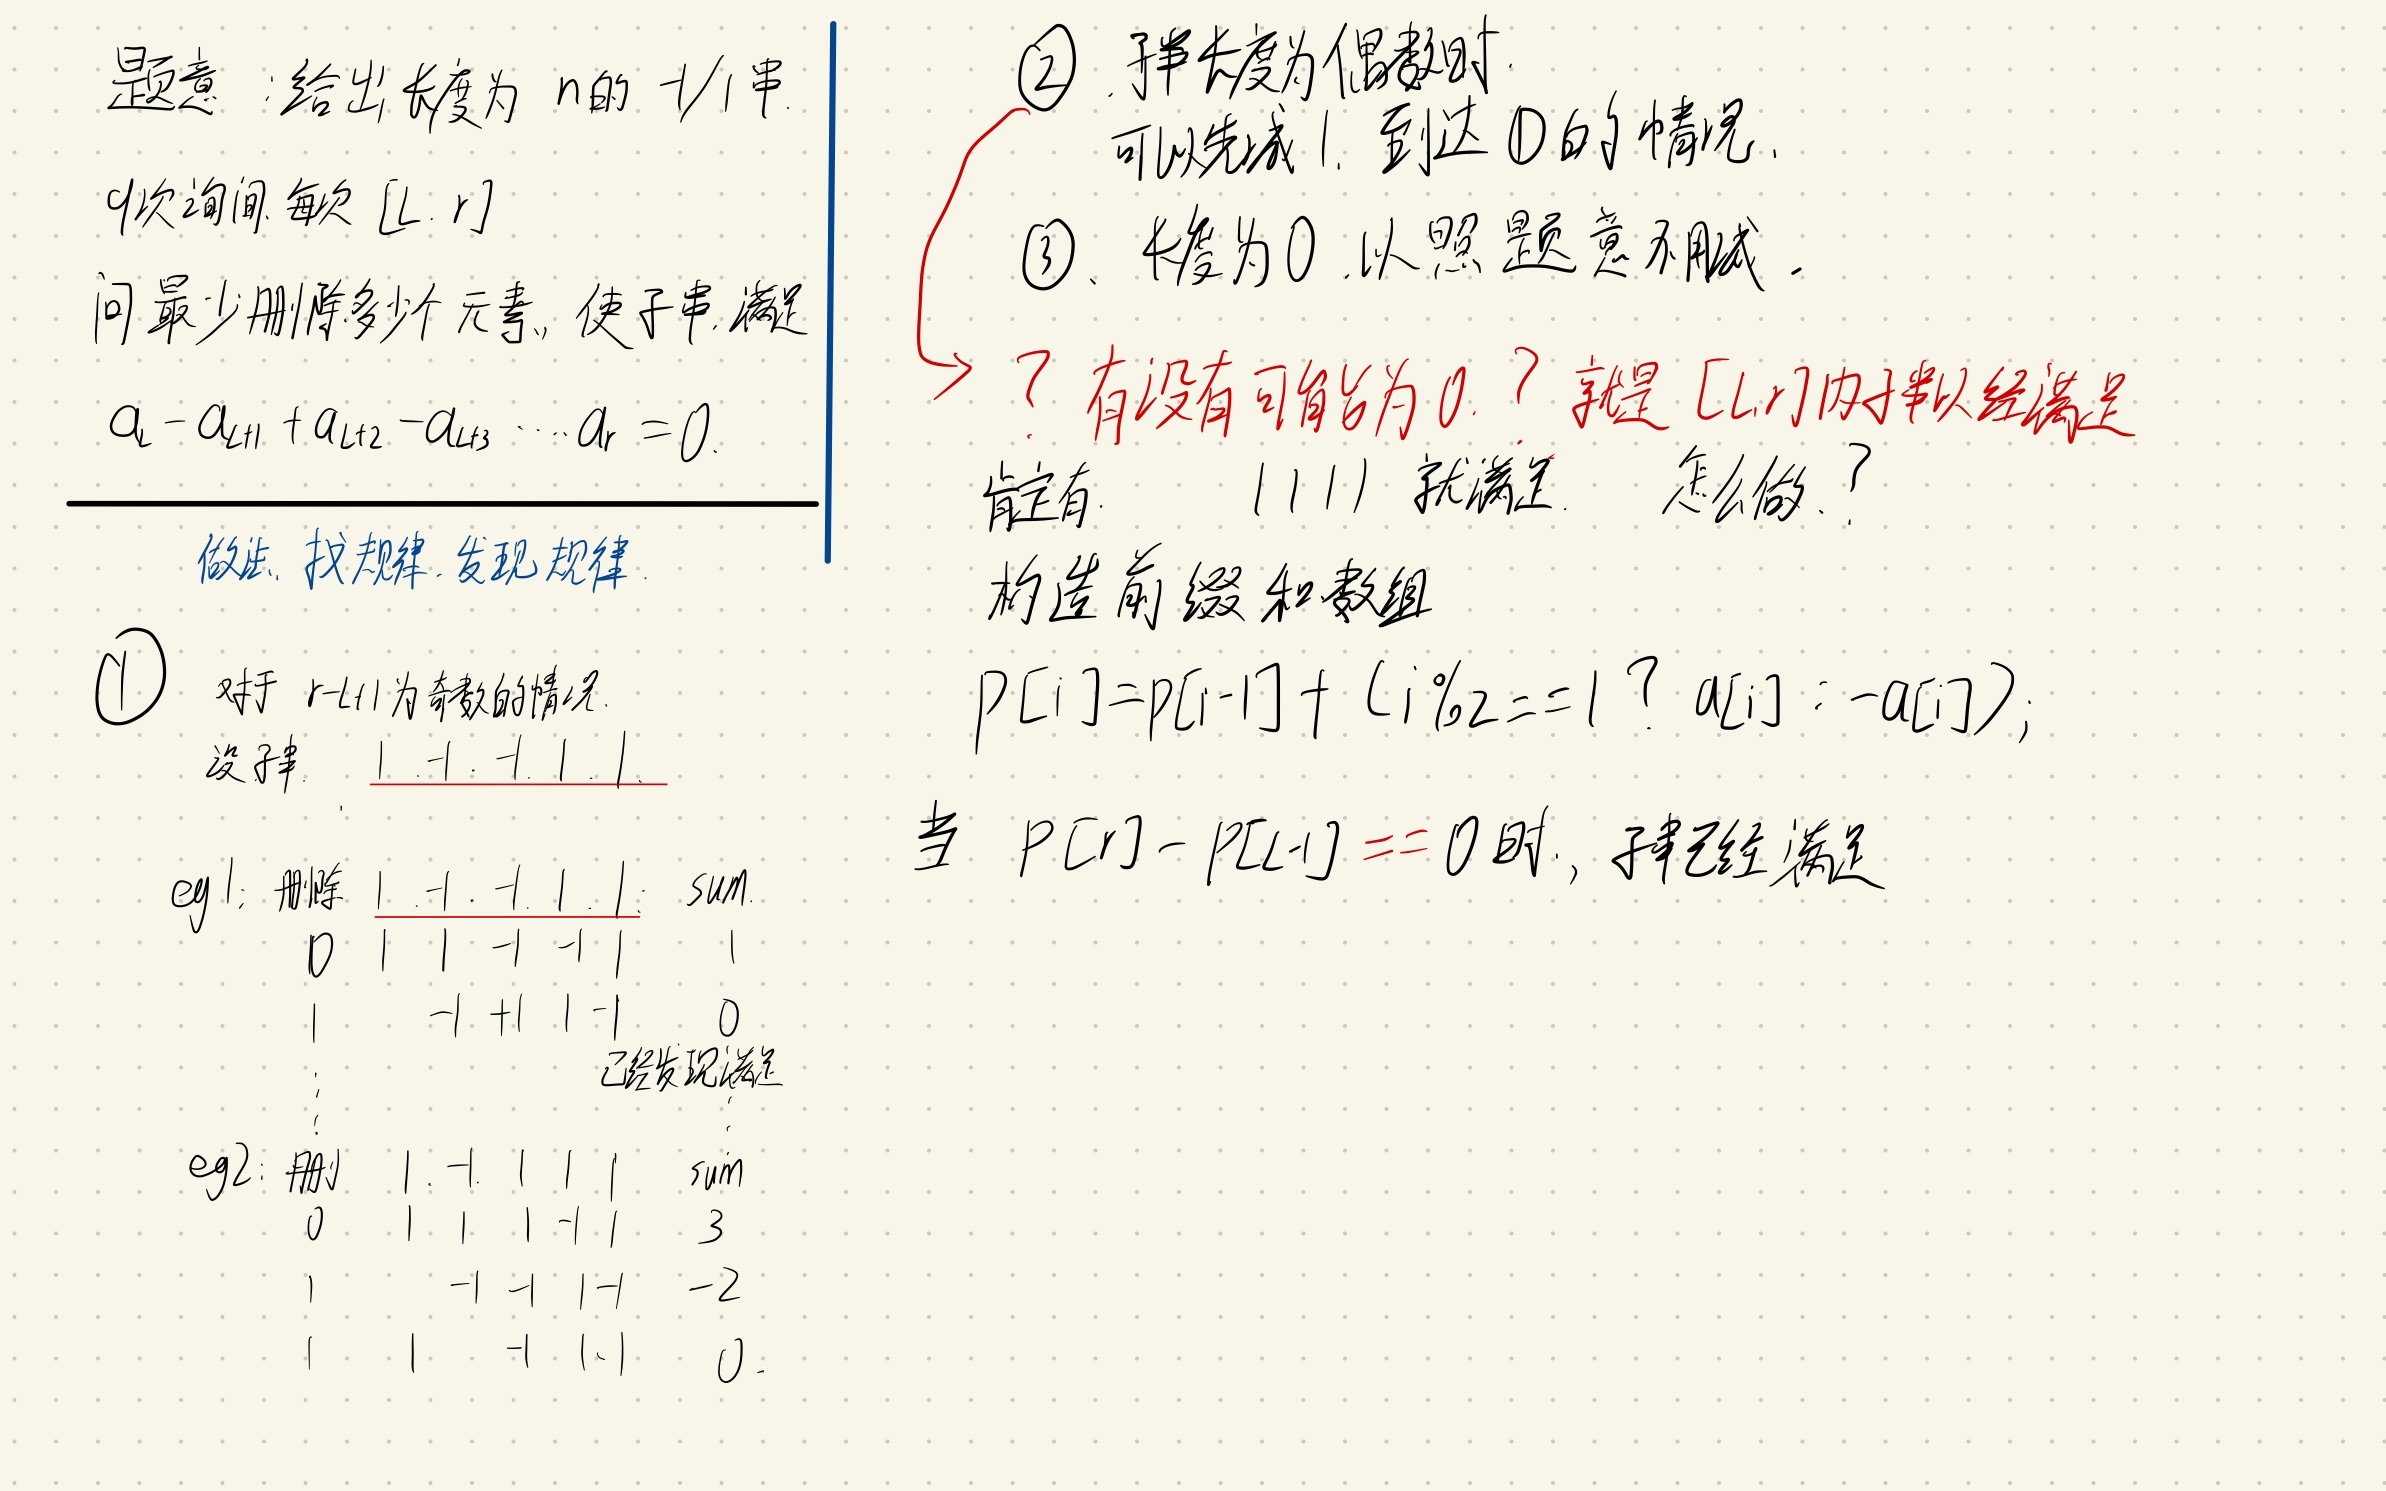 题意：给出长度为 n的 -1/1串.
q次询问.每次 [L.r]
问最少删除多少个元素，使子串.满足
a_L - a_{L+1} + a_{L+2} - a_{L+3} ····a_r = 0.
做法、找规律.发现规律.
① 对于 r-L+1为奇数的情况.
设子串. 1 . -1 . -1. 1 . 1.
eg1: 删除 1 . -1 . -1. 1 . 1. sum.
0 1 1 -1 -1 1 1
1 -1 +1 1 -1 0
已经发现满足
eg2: 删 1. -1. 1 1 1 sum
0 1 1 1 -1 1 3
1 -1 -1 1 -1 -2
1 1 -1 1 -1 0.
② .子串长度为偶数时.
可以先减1. 到达①的情况.
③、长度为0.以照题意不用减.
? 有没有可能为0.? 就是[L,r]内子串以经满足
肯定有. 1111 就满足. 怎么做.?
构造前缀和数组
P[i]=p[i-1]+(i%2==1? a[i] : -a[i]);
当 P[r]-P[L-1]==0时., 子串已经满足